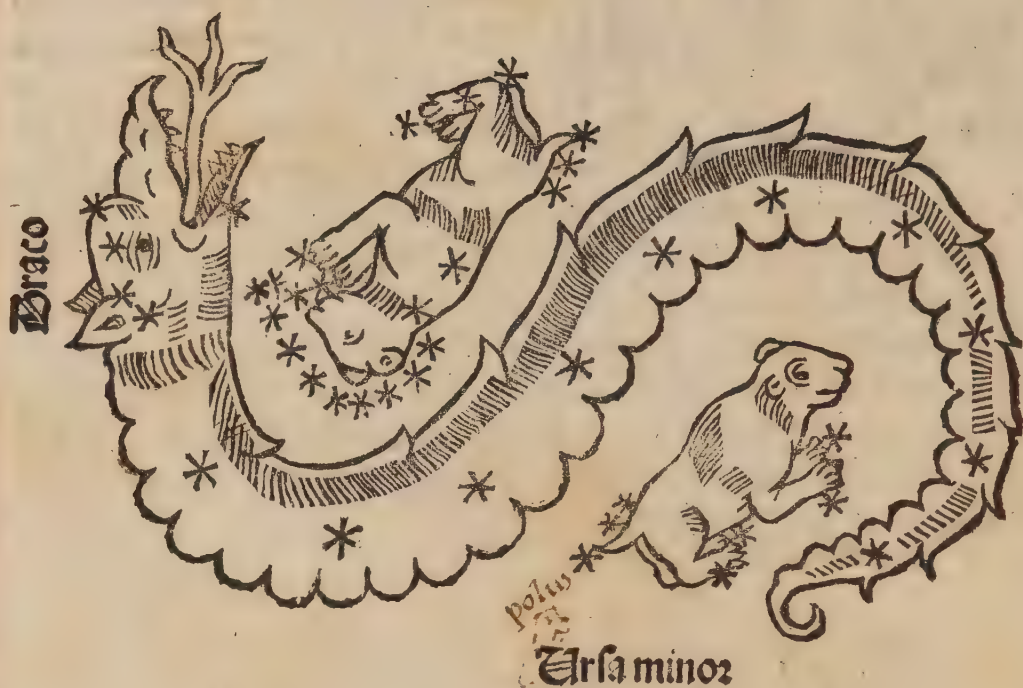 Draco
polus
Ursa minor